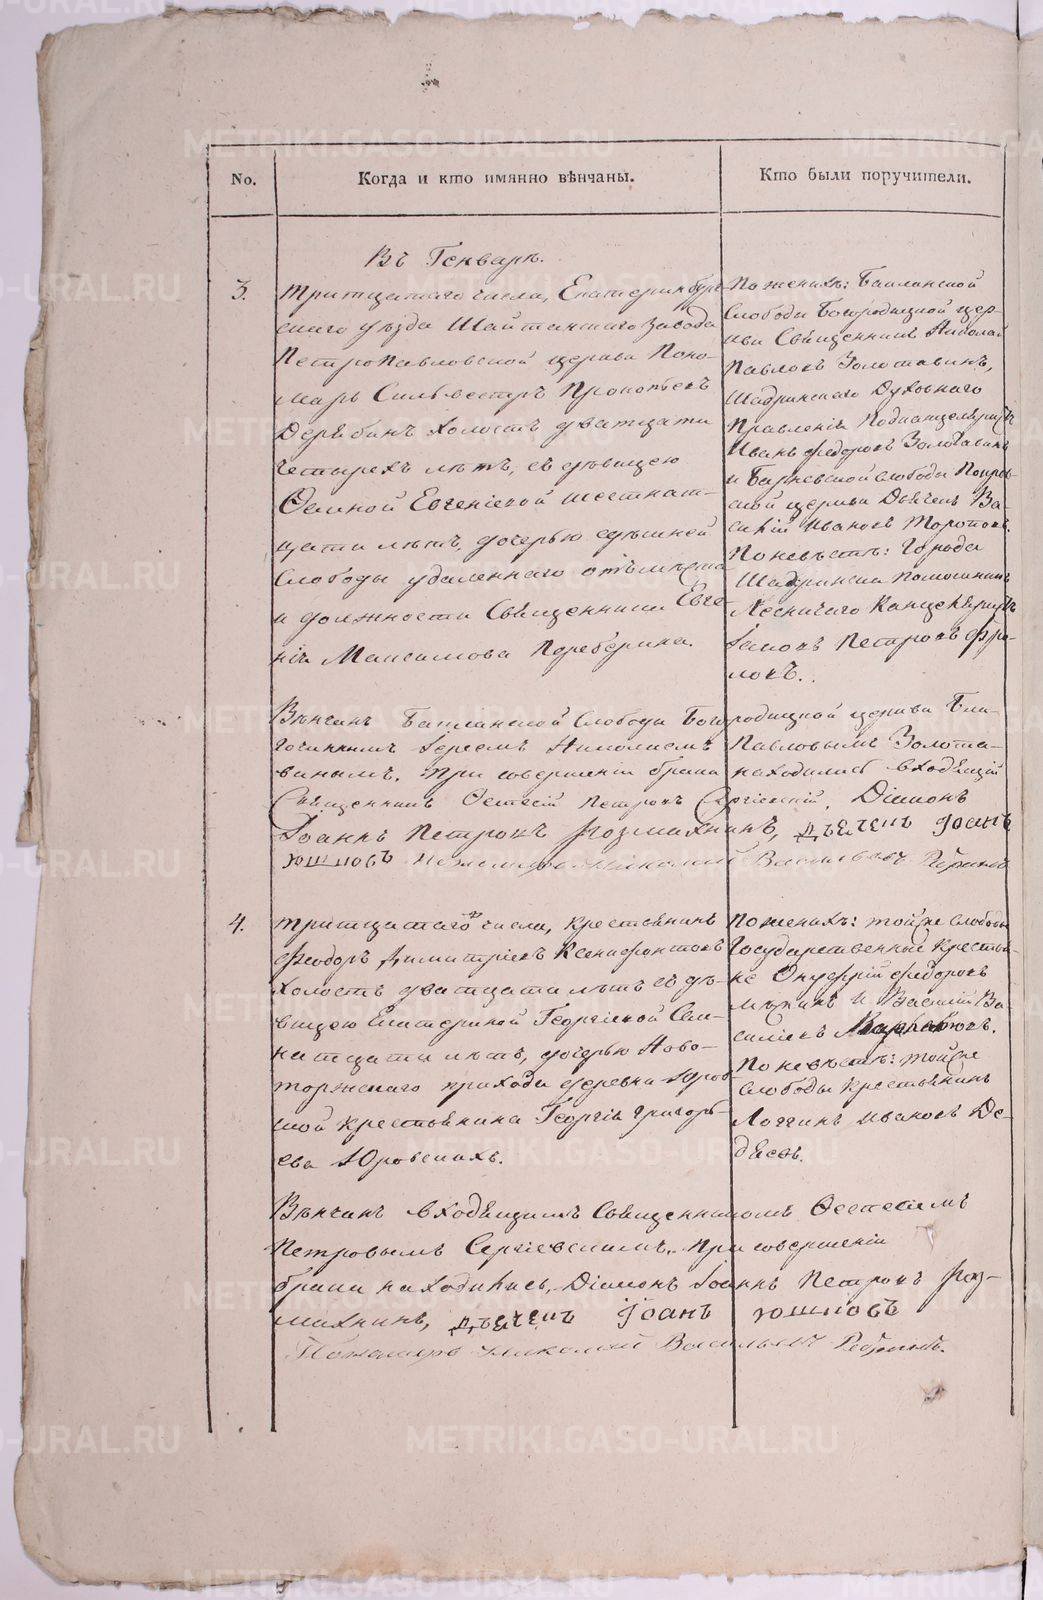 No.
Когда и кто имянно вѣнчаны.
Кто были поручители.
Въ Генварѣ.
3.
тритцатаго числа, Екатеринбург
скаго уѣзда Шайтанскаго завода
Петропавловской церкви Поно-
марь Сильвестръ Прокопьевъ
Дерябинъ холостъ дватцати
четырехъ лѣтъ, съ дѣвицею
Феклой Евгеніевой шестнат-
цати лѣтъ, дочерью здѣшней
слободы удаленнаго отъ мѣста
и должности Священника Евге-
нія Максимова Переберина.
По женихѣ: Бакланской
слободы Богородицкой цер-
кви Священникъ Николай
Павловъ Золотавинъ,
Шадринскаго Духовнаго
Правленія Подканцеляристъ
Иванъ Федоровъ Золотавинъ
и Барневской слободы Покров-
ской церкви Дьячекъ Ва-
силій Ивановъ Топорковъ.
По невѣстѣ: Города
Шадринска помощникъ
Лесничаго Канцеляристъ
Іаковъ Петровъ Фро-
ловъ.
Вѣнчанъ Бакланской слободы Богородицкой церкви Бла-
гочиннымъ Іереемъ Николаемъ Павловымъ Золота-
винымъ. При совершеніи брака находились входящій
Священникъ Петровъ Сергіевскій, Діаконъ
Іоаннъ Петровъ Розмахнинъ, дьячекъ Іоанъ
юшковъ Пономарь Николай Васильевъ
4.
тритцатаго числа, крестьянинъ
Феодоръ Димитріевъ Ксенофонтовъ
холостъ дватцати лѣтъ съ дѣ-
вицею Екатериной Георгіевой
натцати лѣтъ, дочерью Ново-
торжскаго прихода деревни Юров-
ской крестьянина Георгія Григорь-
ева Юровскихъ.
По женихѣ: той же слободы
Государственные крестья-
не Онуфрій Федоровъ
и Василій Ва-
сильевъ
По невѣстѣ: той же
слободы крестьянинъ
Логгинъ Ивановъ
Вѣнчанъ входящимъ Священникомъ
Петровымъ Сергіевскимъ, при совершеніи
брака находились, Діаконъ Іоаннъ Петровъ Роз-
махнинъ, дьячекъ Іоанъ юшковъ
Пономарь Николай Васильевъ
METRIKI.GASO-URAL.RU